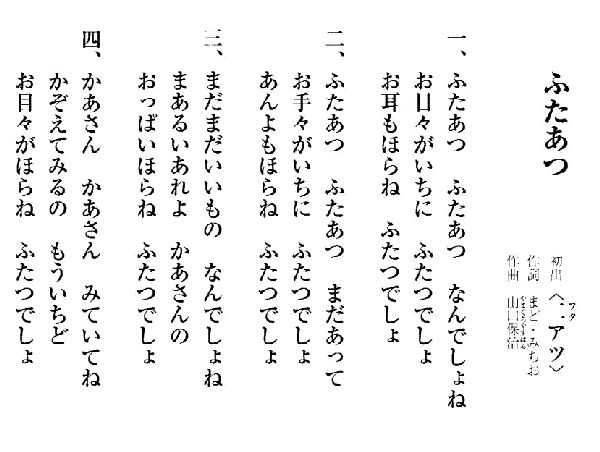 ふたあつ
初出 〈二アツ〉
作詞 まど・みちお
作曲 山口保治
一、ふたあつ ふたあつ なんでしょね
お目々がいちに ふたつでしょ
お耳もほらね ふたつでしょ
二、ふたあつ ふたあつ まだあって
お手々がいちに ふたつでしょ
あんよもほらね ふたつでしょ
三、まだまだいいもの なんでしょね
まあるいあれよ かあさんの
おっぱいほらね ふたつでしょ
四、かあさん かあさん みていてね
かぞえてみるの もういちど
お目々がほらね ふたつでしょ